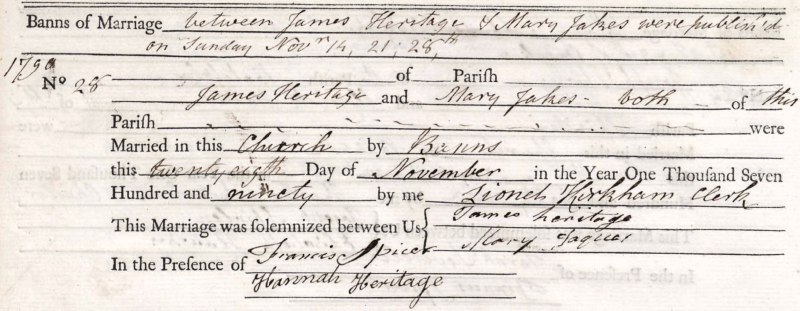 Banns of Marriage between James Heritage & Mary Jakes were publish'd
on Sunday Novr 14, 21, 28th
1790
No 28 of Parish
James Heritage and Mary Jakes - both - of this
Parish were
Married in this Church by Banns
this twenty eighth Day of November in the Year One Thousand Seven
Hundred and ninety by me Lionel Kirkham Clerk
This Marriage was solemnized between Us { James heritage
Mary Jaques
In the Presence of Francis Spicer
Hannah Heritage